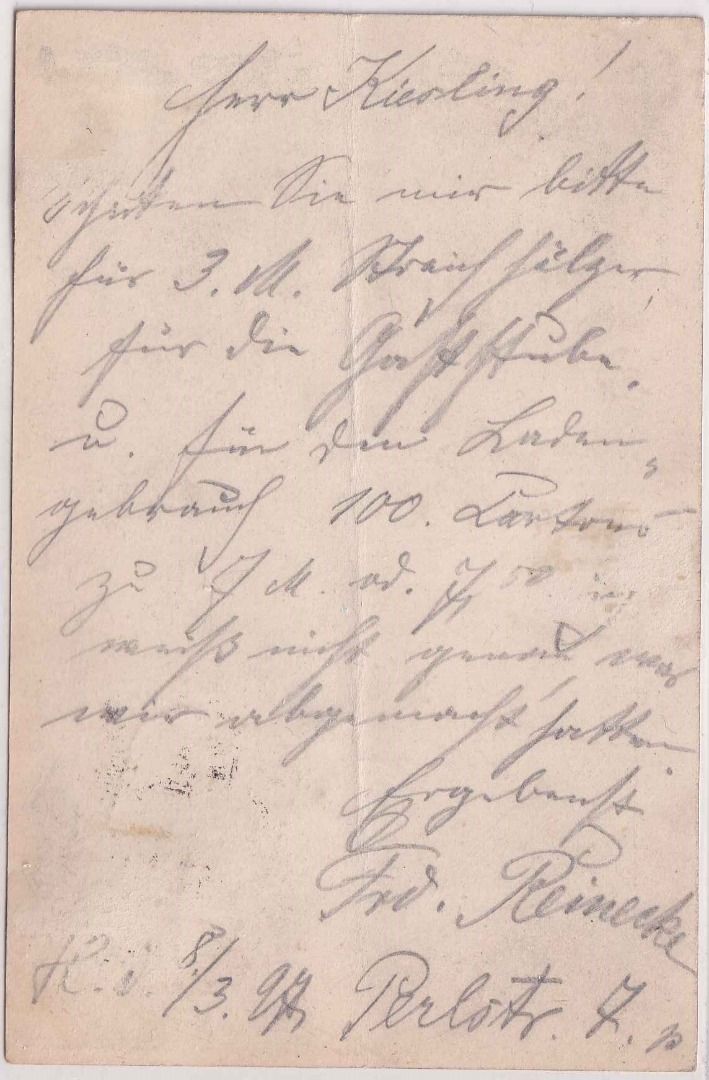 Herr Kiesling!
Sie mir bitte
für 3. M. Streichhölzer,
für die Gaststube,
u. für den Laden-
gebrauch 100. Cartons
zu 7 M. od. 7,50.
weiß nicht genau, was
wir abgemacht hatten.
Ergebenst
Frd. Reinecke
8./3. 97 Perlstr. 7. p